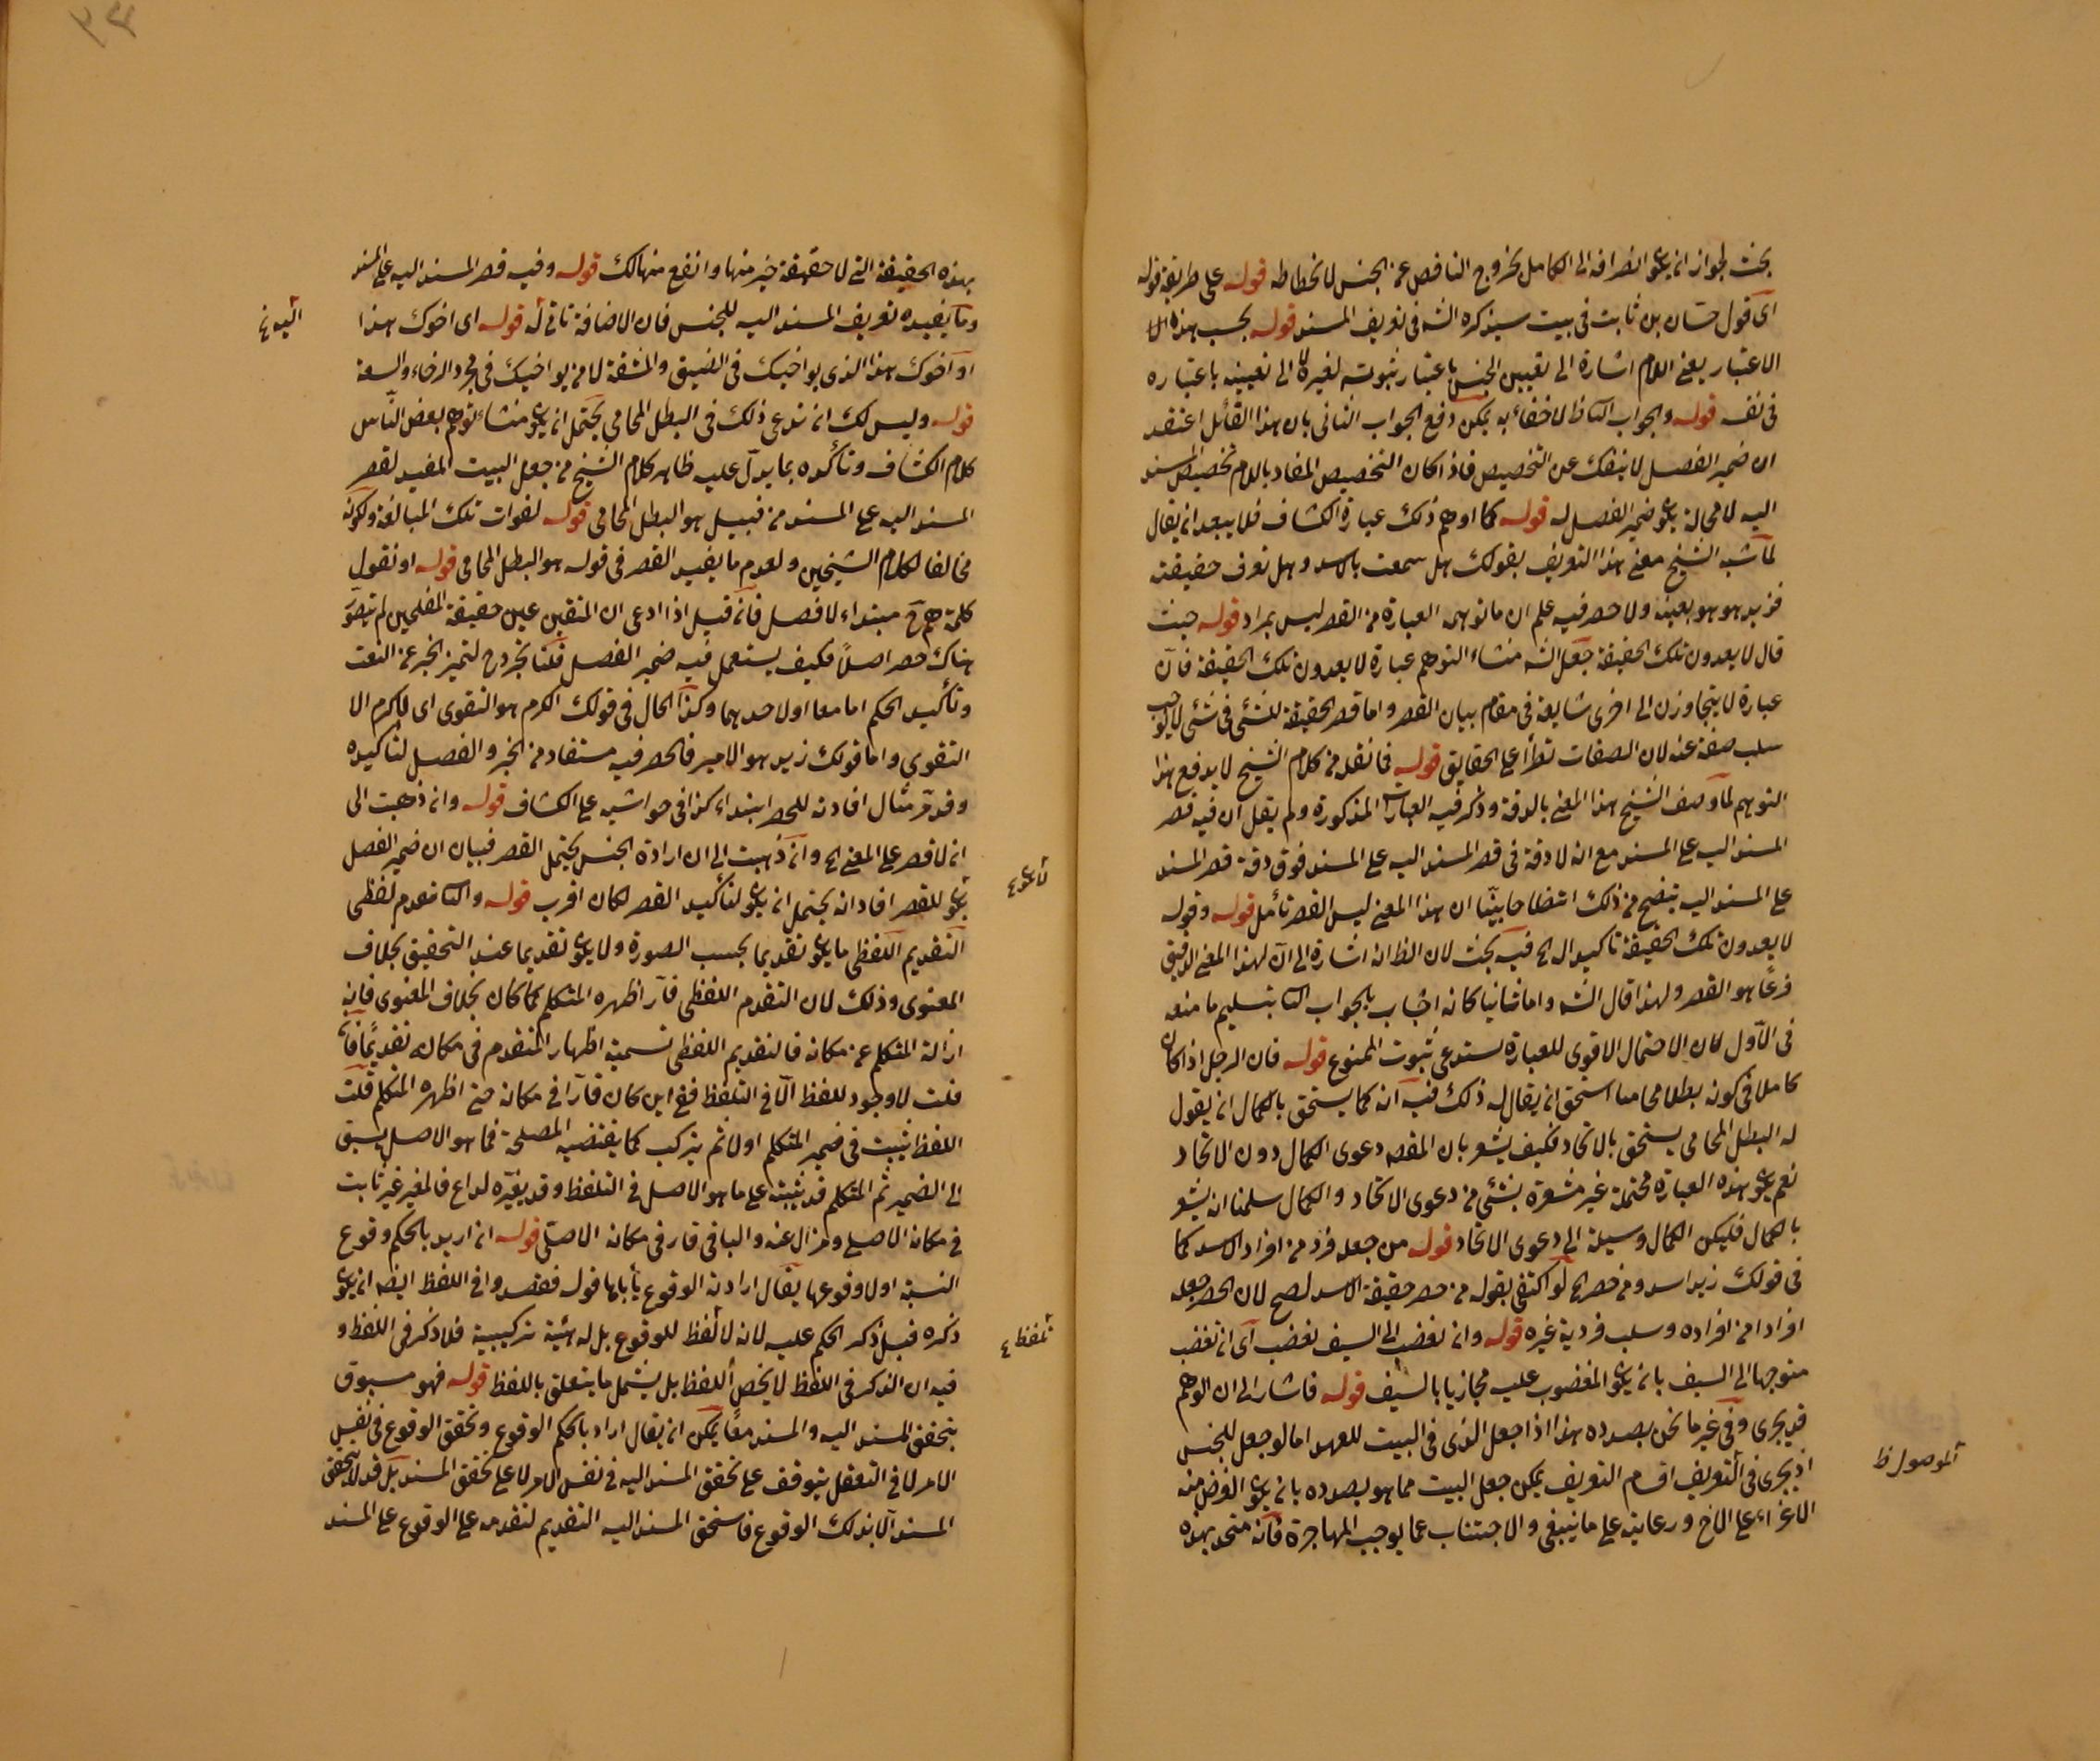 بحث لجواز ان يكون انصرافه الى الكامل لخروج الناقص عن الجنس لانحطاطه قوله على طريقة قوله
اى قول حسان بن ثابت فى بيت سيذكره الشه فى تعريف المسند قوله بحسب هذا الا
الاعتبار يعنى اللام اشارة الى تعيين الجنس باعتبار ثبوته لغيره لا الى تعيينه باعتباره
فى نفسه قوله والجواب الثانى لا خفاء به يمكن دفع الجواب الثانى بان هذا القائل اعتقد
ان ضمير الفصل لا ينفك عن التخصيص فاذا كان التخصيص المفاد باللام تخصيص المسند
اليه لا محالة يكون ضمير الفصل له قوله كما اوهم ذلك عبارة الكشاف فلا يبعد ان يقال
لما شبه الشيخ معنى هذا التعريف بقولك هل سمعت بالاسد وهل تعرف حقيقته
فزيد هو هو بعينه ولا حصر فيه علم ان ما توهمه العبارة من القصر ليس بمراد قوله حيث
قال لا يعدون تلك الحقيقة جعل الشه منشاء التوهم عبارة لا يعدون تلك الحقيقة فان
عبارة لا يتجاوزن الى اخرى شايعة فى مقام بيان القصر واما قصر الحقيقة للشئ فى شئ لا يوجب
سلب صفة عنه لان الصفات تطرأ على الحقايق قوله فما نقله من كلام الشيخ لا يدفع هذا
التوهم لما وصف الشيخ هذا المعنى بالدقة وذكر فيه العبارات المذكورة ولم يقل ان فيه قصر
المسند اليه على المسند مع انه لا دقة فى قصر المسند اليه على المسند فوق دقة قصر المسند
على المسند اليه يتضح من ذلك اتضاحا بينا ان هذا المعنى ليس القصر تأمل قوله وقوله
لا يعدون تلك الحقيقة تاكيد الح فيه بحث لان الظ انه اشارة الى ان لهذا المعنى الدقيق
فرعا هو القصر ولهذا قال الشه واما ثانيا كانه اجاب بالجواب الثانى بتسليم ما منعه
فى الاول لان الاحتمال الاقوى للعبارة يستدعى ثبوت الممنوع قوله فان الرجل اذا كان
كاملا فى كونه بطلا محاميا استحق ان يقال له ذلك فيه انه كما يستحق بالكمال ان يقول
له البطل المحامى يستحق بالاتحاد فكيف يشعر بان المقصد دعوى الكمال دون الاتحاد
نعم يكون هذه العبارة محتملة غير مشعرة بشئ من دعوى الاتحاد والكمال سلمنا انه يشعر
بالكمال فليكن الكمال وسيلة الى دعوى الاتحاد قوله من جعله فرد من افراد الاسد كما
فى قولك زيد اسد ومن حصر الح لو اكتفى بقوله من حصر حقيقة الاسد لصح لان الحصر جعله
افرادا من افراده وسلب فردية غيره قوله وان تغضب الى السيف تغضب اى ان تغضب
متوجها الى السيف بان يكون المغضوب عليه مجازيا بالسيف قوله فاشار الى ان الوهم
قد يجرى وفى غير ما نحن بصدده هذا اذا جعل الذى فى البيت للعهد اما لو جعل للجنس
اذ يجرى فى التعريف اقسام التعريف يمكن جعل البيت مما هو بصدده بان يكون الغرض منه
الاغراء على الاخ ورعايته على ما ينبغى والاجتناب عما يوجب المهاجرة فانه متحد بهذه
الموصول ظ
بهذه الحقيقة التى لا حقيقة خير منها وانفع منها لك قوله وفيه قصر المسند اليه على المسند
وما يفيده تعريف المسند اليه للجنس فان الاضافة تاتى له قوله اى اخوك هذا
او اخوك هذا الذى يواخيك فى الضيق والمشقة لا من يواخيك فى مجرد الرخاء والسعة
قوله وليس لك ان تدعى ذلك فى البطل المحامى يحتمل ان يكون منشاء توهم بعض الناس
كلام الكشاف وتأكده بما يدل عليه ظاهر كلام الشيخ من جعل البيت المفيد لقصر
المسند اليه على المسند من قبيل هو البطل المحامى قوله لفوات تلك المبالغة ولكونه
مخالفا لكلام الشيخين ولعدم ما يفيد القصر فى قوله هو البطل المحامى قوله او نقول
كلمة هم ح مبتداء لا فصل فان قيل اذا ادعى ان المتقين عين حقيقة المفلحين لم يتصور
هناك حصر اصلا فكيف يستعمل فيه ضمير الفصل قلنا يجرد ح لتميز الخبر عن النعت
وتأكيد الحكم اما معا او لاحدهما وكذا الحال فى قولك الكرم هو التقوى اى لا كرم الا
التقوى واما قولك زيد هو الامير فالحصر فيه مستفاد من الخبر والفصل لتأكيده
وقد مر مثال افادته للحصر ابتداء كذا فى حواشيه على الكشاف قوله وان ذهبت الى
انه لا قصر على المعنى الح وان ذهبت الى ان ارادة الجنس يحتمل القصر فبيان ان ضمير الفصل
يكون للقصر افاد انه يحتمل ان يكون لتأكيد القصر لكان اقرب قوله والتقدم لفظى
التقديم اللفظى ما يكون تقديما بحسب الصورة ولا يكون تقديما عند التحقيق بخلاف
المعنوى وذلك لان التقدم اللفظى قار اظهره المتكلم كما كان بخلاف المعنوى فانه
ازالة المتكلم عن مكانه فالتقديم اللفظى تسمية اظهار المتقدم فى مكانه تقديما فان
قلت لا وجود للفظ الا فى التلفظ فمن اين كان قارا فى مكانه حتى اظهره المتكلم قلت
اللفظ يثبت فى ضمير المتكلم اولا ثم يتركب كما يقتضيه المصلحة فما هو الاصل يسبق
الى الضمير ثم المتكلم قد يثبته على ما هو الاصل فى التلفظ وقد يغيره لداع فالمغير غير ثابت
فى مكانه الاصلى ومزال عنه والباقى قار فى مكانه الاصلى قوله ان اريد بالحكم وقوع
النسبة او لا وقوعها يقال ارادة الوقوع يأباها قوله فقصدوا فى اللفظ ايضه ان يكون
ذكره قبل ذكر الحكم عليه لانه لا لفظ للوقوع بل له هيئة تركيبية فلا ذكر فى اللفظ و
فيه ان الذكر فى اللفظ لا يخص اللفظ بل يشمل ما يتعلق باللفظ قوله فهو مسبوق
بتحقق المسند اليه والمسند معا يمكن ان يقال اراد بالحكم الوقوع وتحقق الوقوع فى نفس
الامر لا فى التعقل يتوقف على تحقق المسند اليه فى نفس الامر لا على تحقق المسند بل قد لا يتحقق
المسند الا بذلك الوقوع فاستحق المسند اليه التقديم لتقدمه على الوقوع على المسند